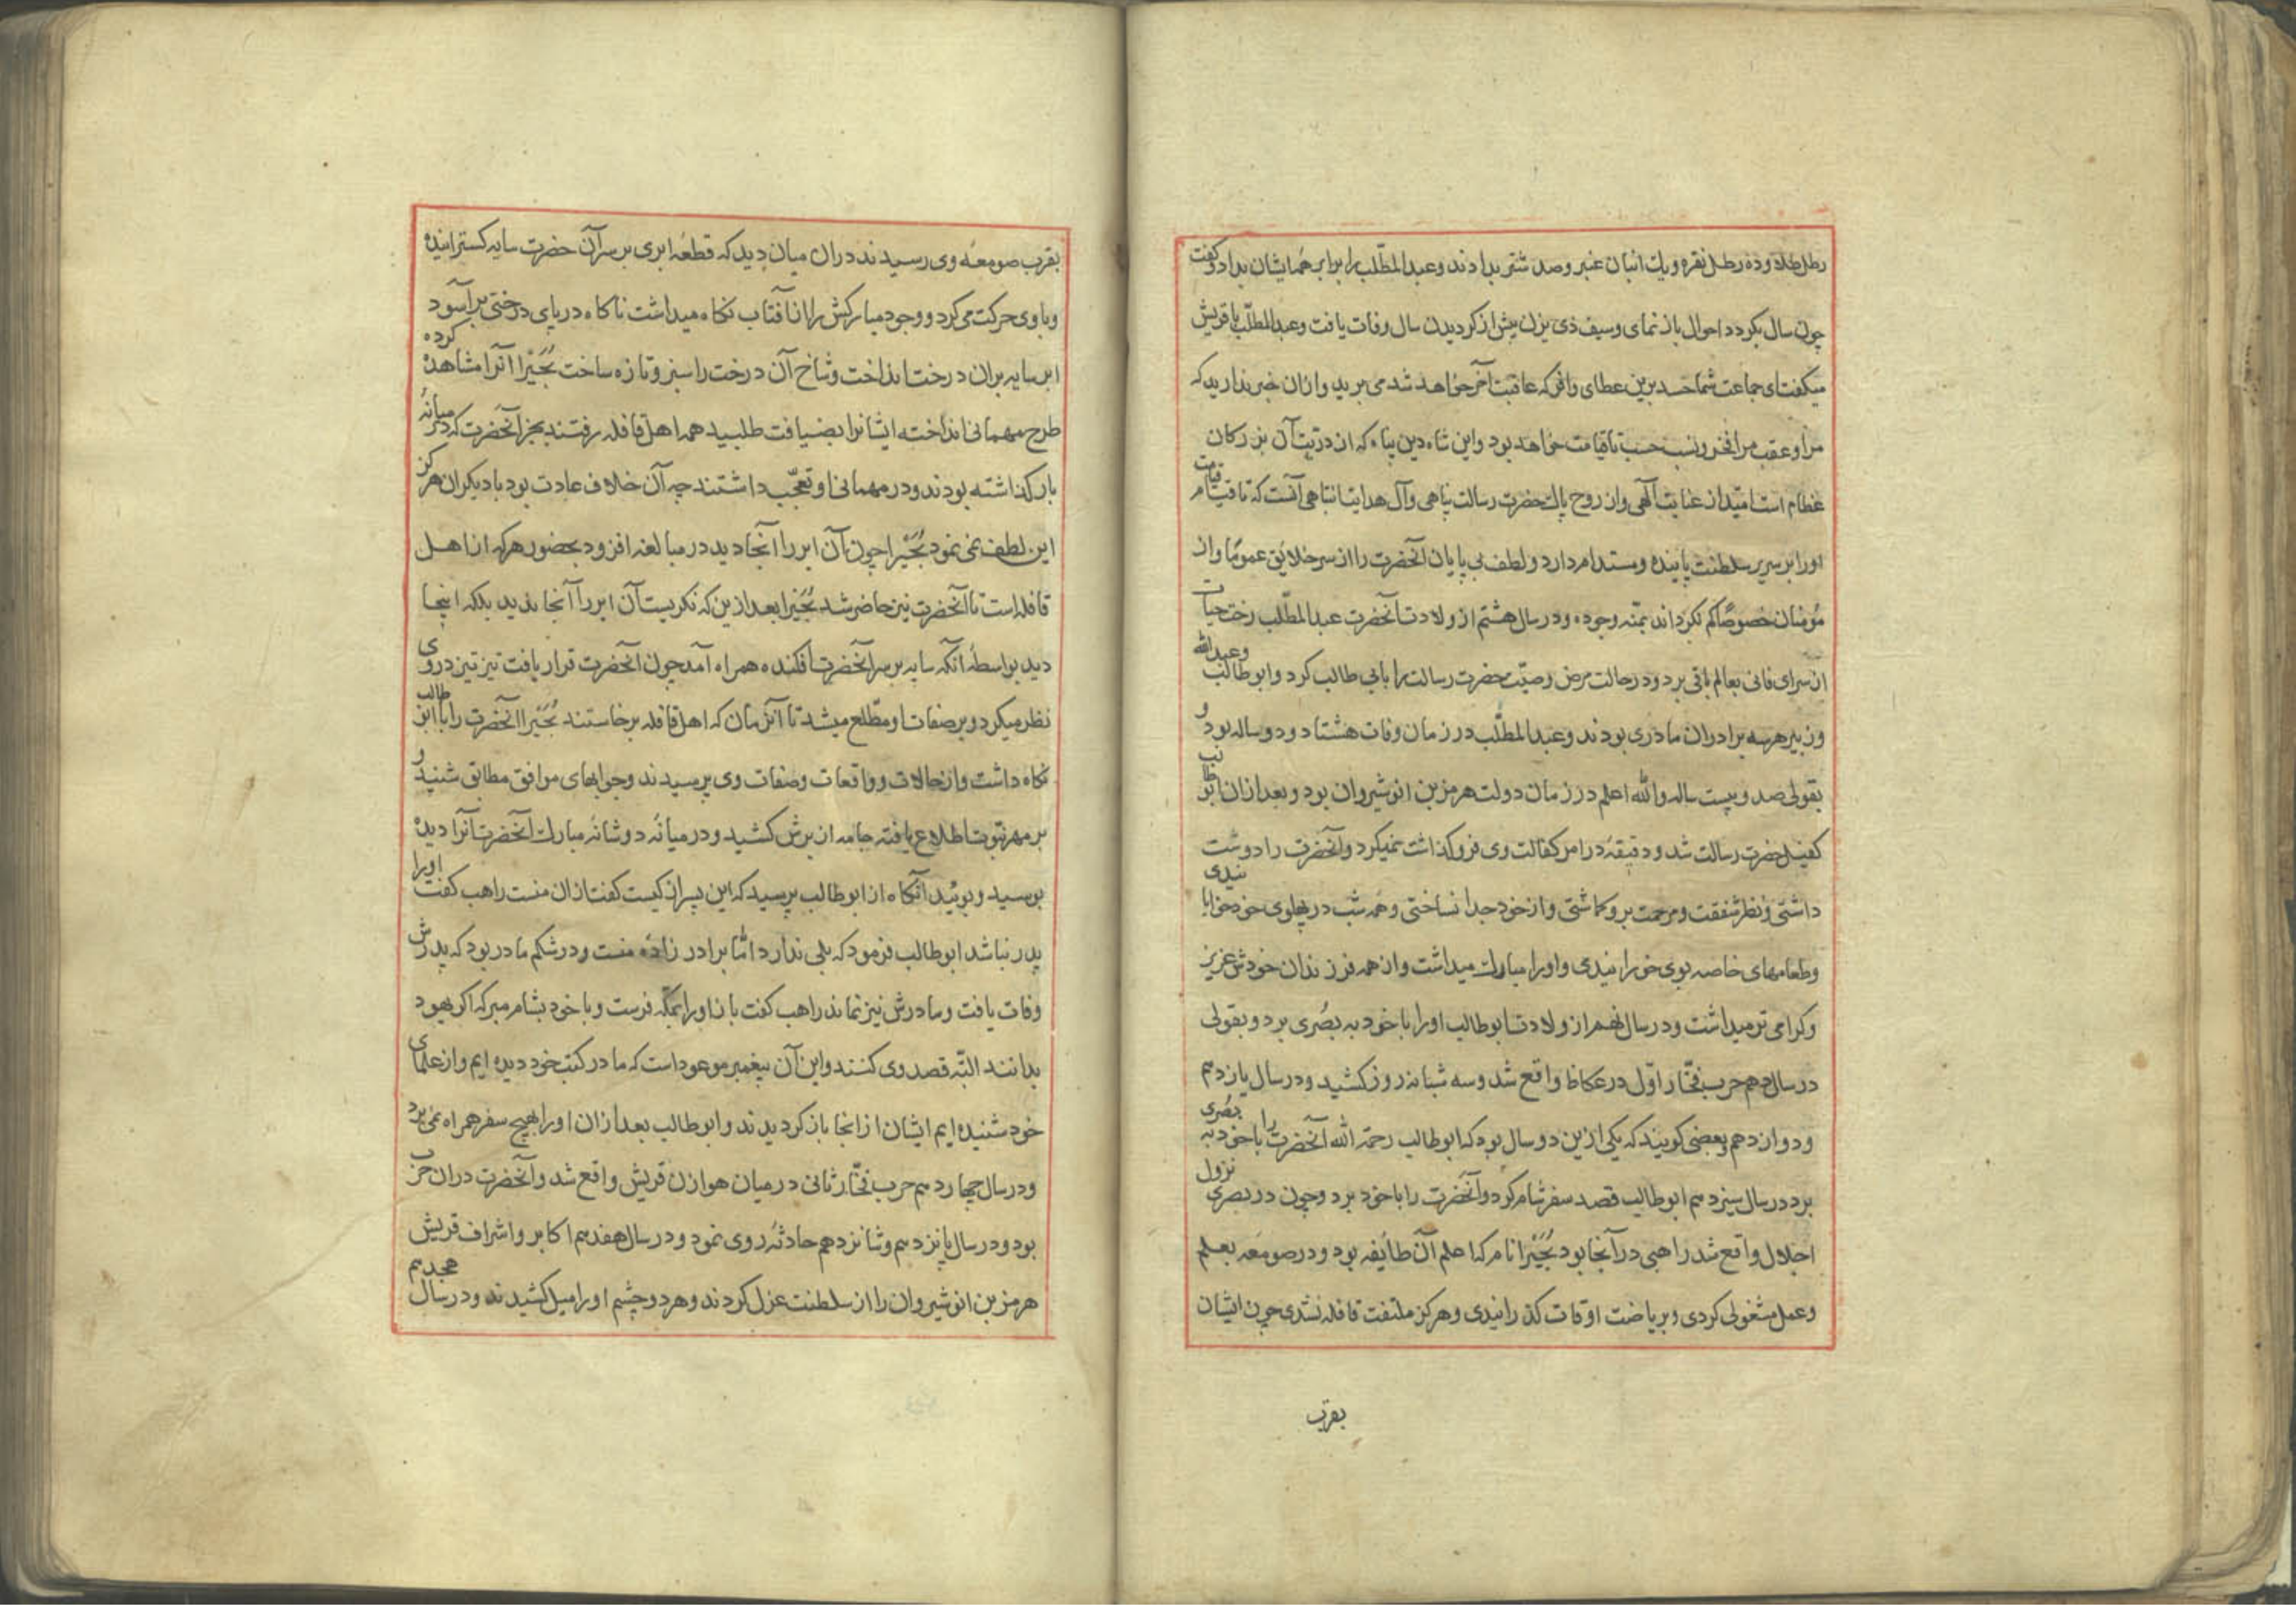 رطل طلا و ده رطل نقره و یك انبان عنبر و صد شتر بدادند و عبدالمطّلب را برابر همه ایشان بداد و کفت
چون سال بکردد احوال باز نمای و سیف ذی یزن پیش از کردیدن سال وفات یافت و عبدالمطلّب با قریش
میکفت ای جماعت شما حسد برین عطای وافر که عاقبت آخر خواهد شد می برید و ازان خبر ندارید که
مرا و عقب مرا فخر و نسب حسب تا قیامت خواهد بود و این شاه دین پناه که از ذریّت آن بزرکان
عظام است امیّد از عنایت آلهی و از روح پاك حضرت رسالت پناهی و آل هدایت انتباهی آنست که تا قیام قیامت
او را بر سریر سلطنت پاینده و مستدام دارد و لطف بی پایان آنحضرت را از سر خلایق عموماً و از
مؤمنان خصوصاً کم نکرداند بمنّه وجوده و در سال هشتم از ولادت آنحضرت عبدالمطّلب رخت حیات
از سرای فانی بعالم باقی برد و در حالت مرض وصیّت حضرت رسالت را بابی طالب کرد و ابو طالب و عبدالله
و زبیر هر سه برادران مادری بودند و عبدالمطّلب در زمان وفات هشتاد و دو ساله بود و
بقولی صد و بیست ساله والله اعلم در زمان دولت هرمز بن انوشیروان بود و بعد ازان ابو طالب
کفیل حضرت رسالت شد و دقیقهٔ در امر کفالت وی فرو کذاشت نمیکرد و آنحضرت را دوست
داشتی و نظر شفقت و مرحمت برو کماشتی و از خود جدا نساختی و همه شب در پهلوی خود خوابانیدی
و طعامهای خاصه بوی خورانیدی و او را مبارك میداشت و از همه فرزندان خودش عزیز
و کرامی تر میداشت و در سال نهم از ولادت ابو طالب او را با خود به بصُری برد و بقولی
در سال دهم حرب فجّار اوّل در عکاظ واقع شد و سه شبانه روز کشید و در سال یازدهم
و دوازدهم و بعضی کویند که یکی ازین دو سال بود که ابو طالب رحمة الله آنحضرت را با خود به بصُری
برد در سال سیزدهم ابو طالب قصد سفر شام کرد و آنحضرت را با خود برد و چون در بصری نزول
اجلال واقع شد راهبی در آنجا بود بُحَیْرا نام که اعلم آن طائفه بود و در صومعه بعلم
و عمل مشغولی کردی و بریاضت اوقات کذرانیدی و هرکز ملتفت قافله نشدی چون ایشان
بقرب
بقرب صومعهٔ وی رسیدند دران میان دید که قطعهٔ ابری بر سر آن حضرت سایه کسترانیده
و با وی حرکت می کرد و وجود مبارکش را از آفتاب نکاه میداشت ناکاه در پای درختی برآسود
ابر سایه بران درخت انداخت و شاخ آن درخت را سبز و تازه ساخت بُحَیْرا آنرا مشاهده کرده
طرح مهمانی انداخته ایشانرا بضیافت طلبید همه اهل قافله رفتند بجز آنحضرت که در میانهٔ
بار کذاشته بودند و در مهمانی او تعجّب داشتند چه آن خلاف عادت بود با دیکران هرکز
این لطف نمی نمود بُحَیْرا چون آن ابر را آنجا دید در مبالغه افزود بحضور هرکه از اهل
قافله است تا آنحضرت نیز حاضر شد بُحَیْرا بعد ازین که نکریست آن ابر را آنجا ندید بلکه اینجا
دید بواسطهٔ آنکه سایه بر سر آنحضرت افکنده همراه آمد چون آنحضرت قرار یافت تیز تیز در وی
نظر میکرد و بر صفات او مطّلع میشد تا آنزمان که اهل قافله برخاستند بُحَیْرا آنحضرت را با ابو طالب
نکاه داشت و از حالات و واقعات و صفات وی پرسیدند و جوابهای موافق مطابق شنید و
بر مهر نبّوت اطلاع یافته جامه از برش کشید و در میانهٔ دو شانهٔ مبارك آنحضرت آنرا دیده
بوسید و بوئید آنکاه از ابو طالب پرسید که این پسر از کیست کفت ازان منست راهب کفت او را
پدر نباشد ابو طالب فرمود که بلی ندارد امّا برادر زادهٔ منست و در شکم مادر بود که پدرش
وفات یافت و مادرش نیز نماند راهب کفت باز او را بمکّه فرست و با خود بشام مبر که اکر یهود
بدانند البّته قصد وی کنند و این آن پیغمبر موعود است که ما در کتب خود دیده ایم و از علمای
خود شنیده ایم ایشان از انجا باز کردیدند و ابو طالب بعد ازان او را بهیچ سفر همراه نمی برد
و در سال چهاردهم حرب فجّار ثانی در میان هوازن قریش واقع شد و آنحضرت دران حرب
بود و در سال پانزدهم و شانزدهم حادثهٔ روی نمود و در سال هفدهم اکابر و اشراف قریش
هرمز بن انوشیروان را از سلطنت عزل کردند و هر دو چشم او را میل کشیدند و در سال هجدهم